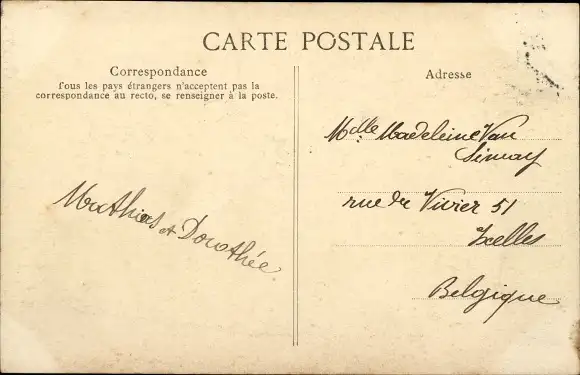 CARTE POSTALE
Correspondance
Tous les pays étrangers n'acceptent pas la
correspondance au recto, se renseigner à la poste.
Mathias et Dorothée
Adresse
Mdlle Madeleine Van
Simay
rue du Vivier 51
Ixelles
Belgique